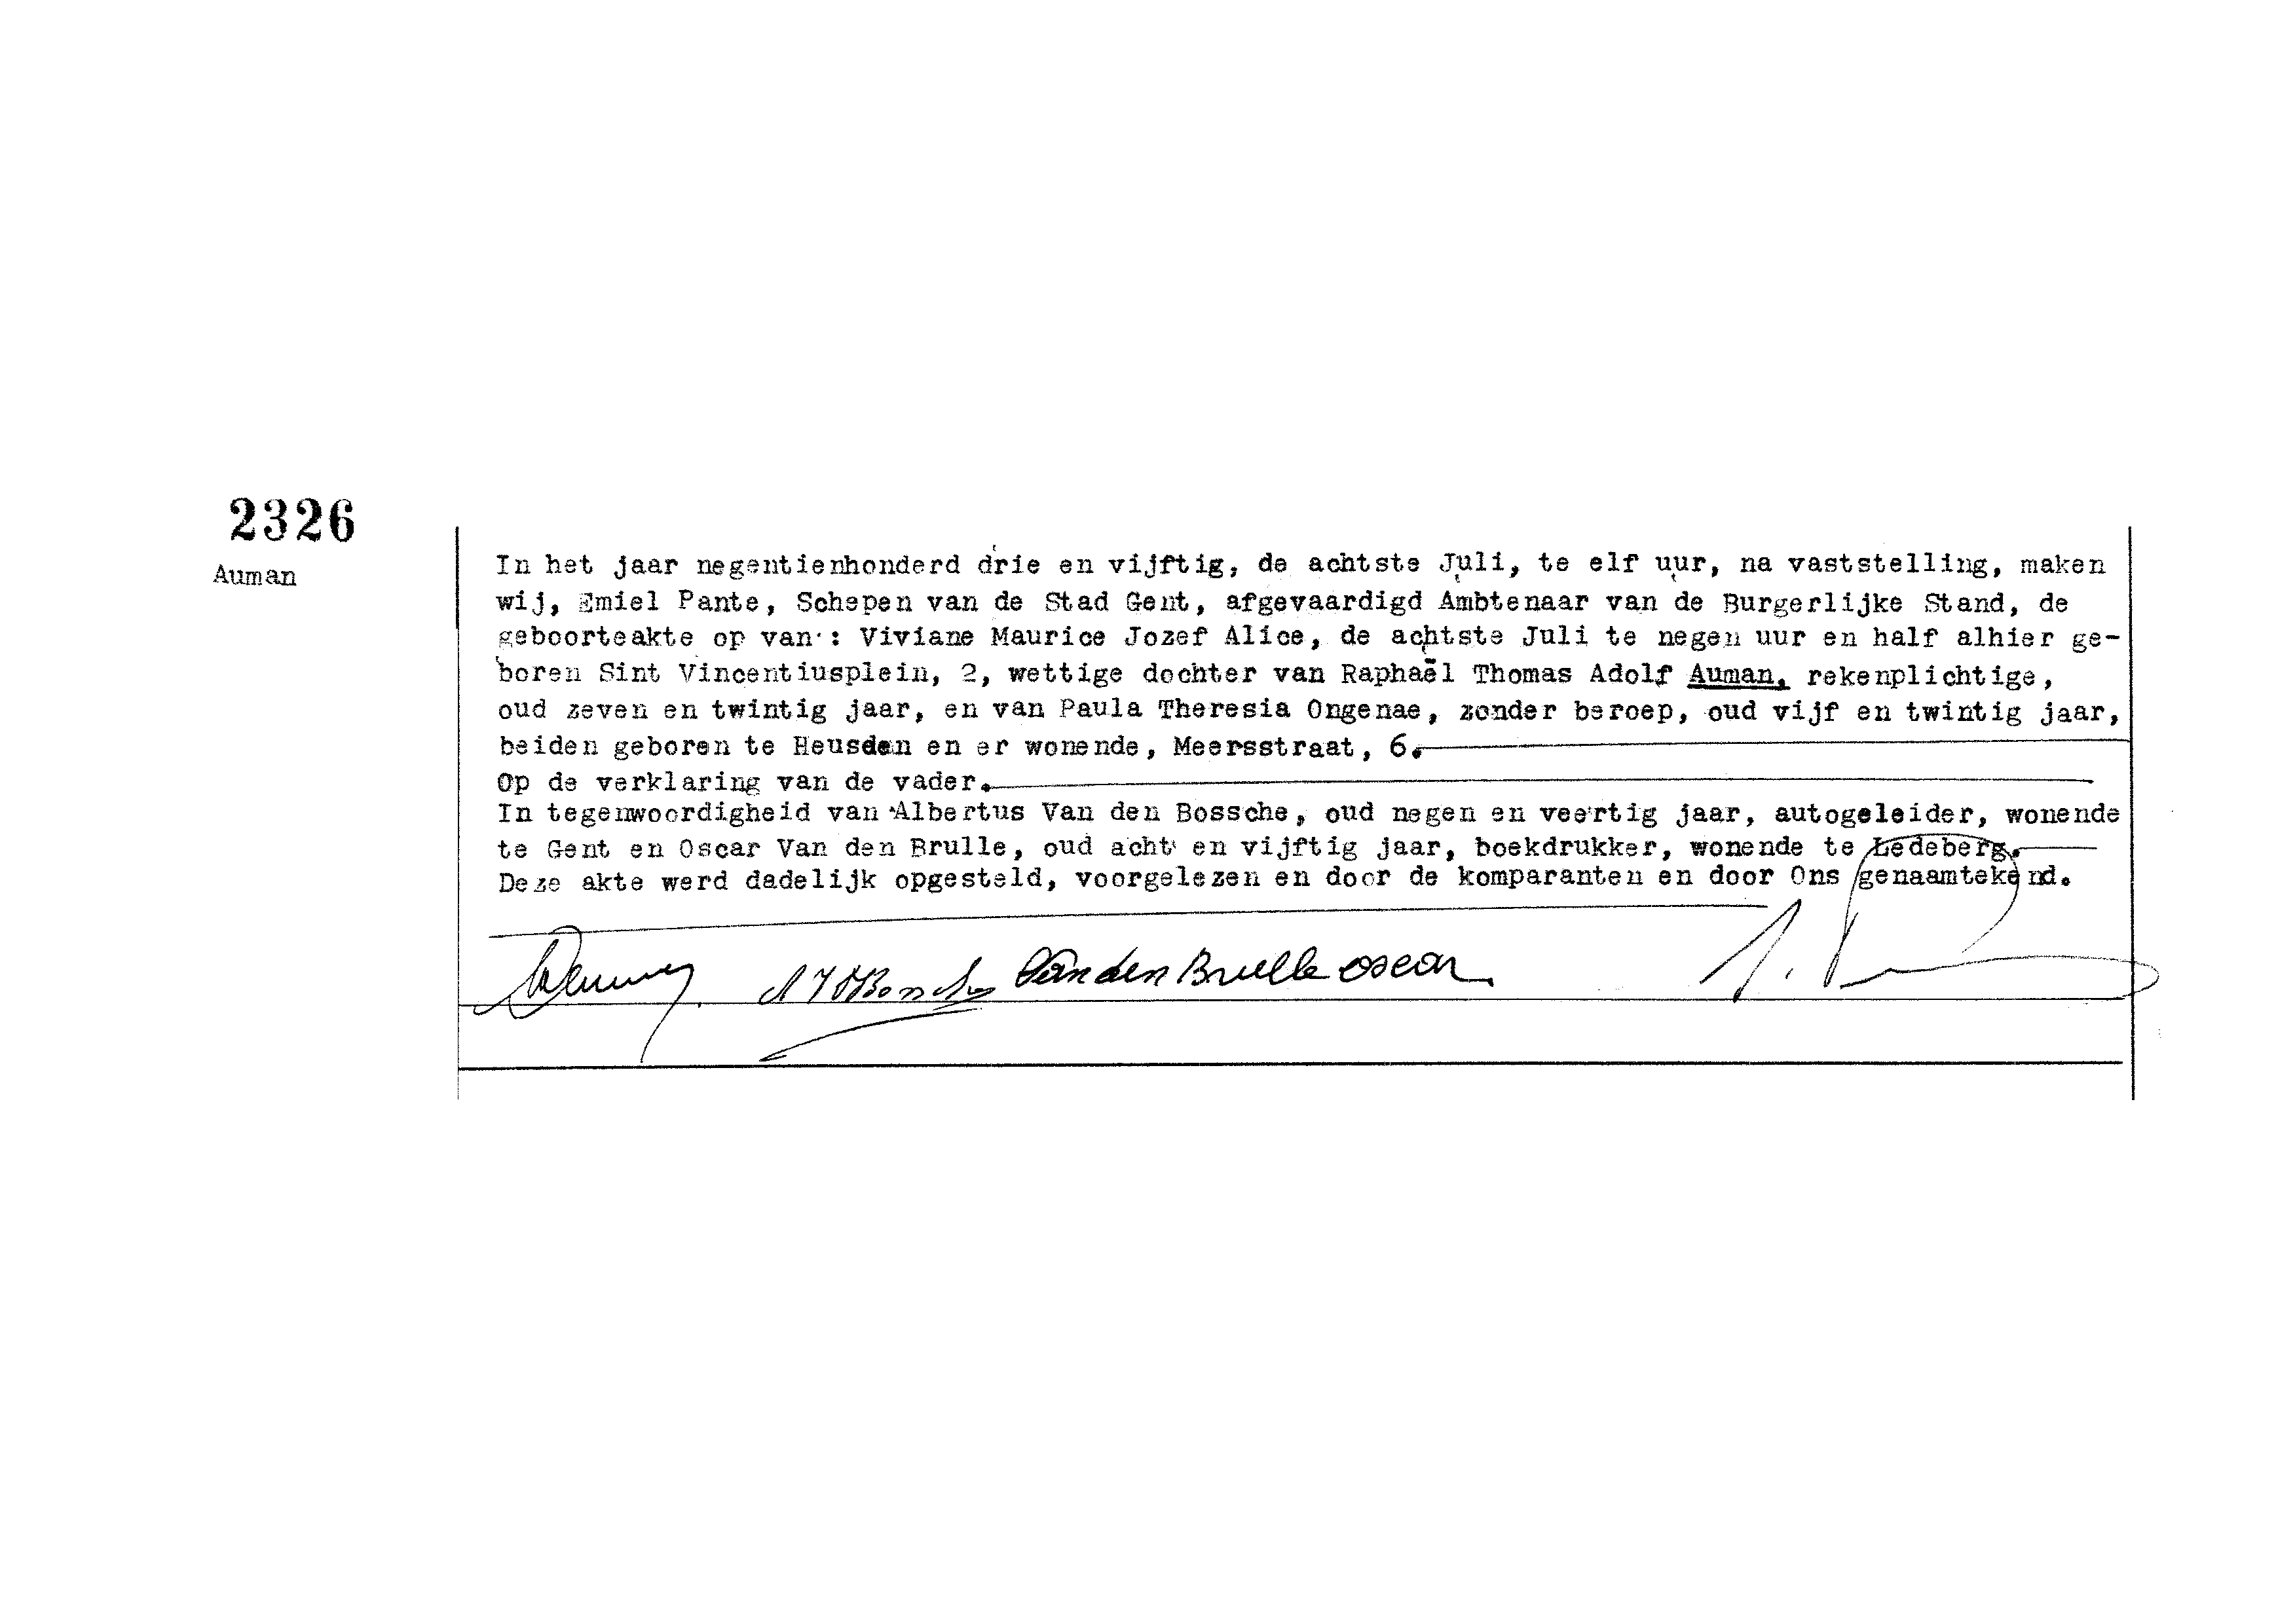 2326
Auman
In het jaar negentienhonderd drie en vijftig, de achtste Juli, te elf uur, na vaststelling, maken
wij, Emiel Pante, Schepen van de Stad Gent, afgevaardigd Ambtenaar van de Burgerlijke Stand, de
geboorteakte op van : Viviane Maurice Jozef Alice, de achtste Juli te negen uur en half alhier ge-
boren Sint Vincentiusplein, 2, wettige dochter van Raphaël Thomas Adolf Auman, rekenplichtige,
oud zeven en twintig jaar, en van Paula Theresia Ongenae, zonder beroep, oud vijf en twintig jaar,
beiden geboren te Heusden en er wonende, Meersstraat, 6.
Op de verklaring van de vader.
In tegenwoordigheid van Albertus Van den Bossche, oud negen en veertig jaar, autogeleider, wonende
te Gent en Oscar Van den Brulle, oud acht en vijftig jaar, boekdrukker, wonende te Ledeberg.
Deze akte werd dadelijk opgesteld, voorgelezen en door de komparanten en door Ons genaamtekend.
Van den Brulle oscar